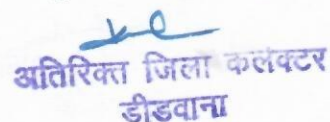 अतिरिक्त जिला कलेक्टर
डीडवाना